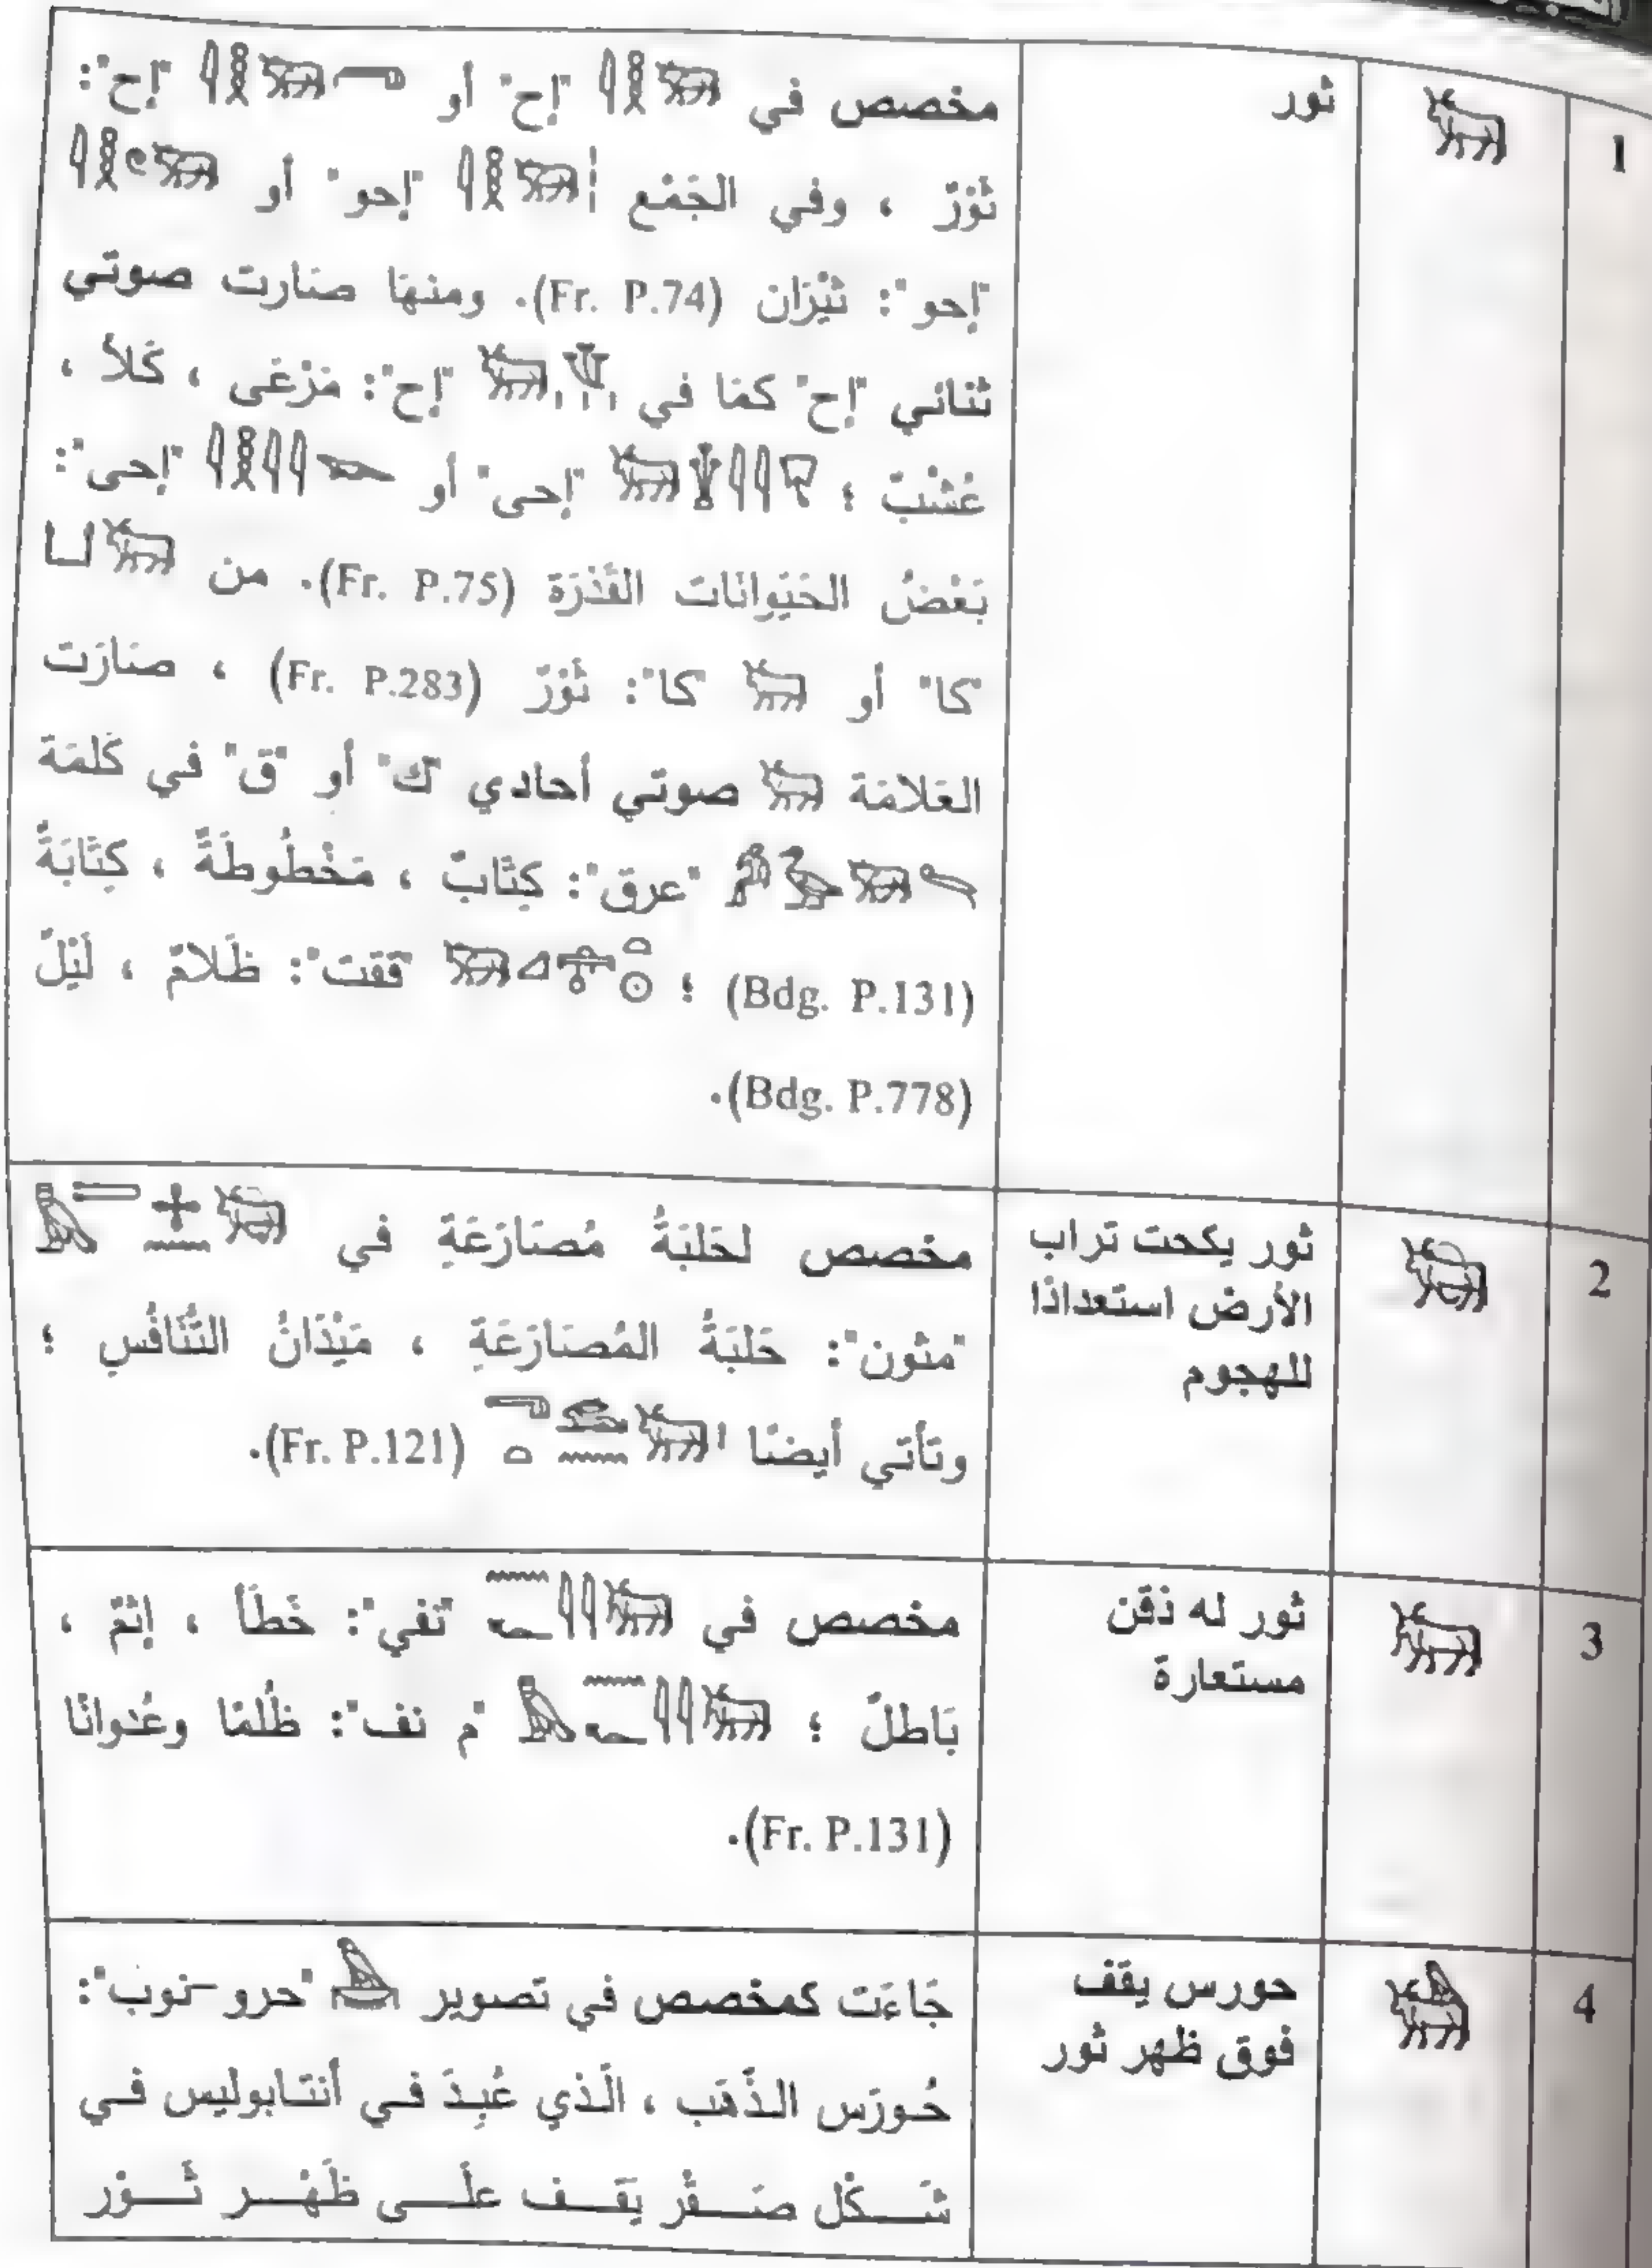 1
ثور
مخصص في "إح" أو "إح":
ثَوْرٌ ، وفي الجَمْع "إحو" أو
"إحو": ثيْرَان (Fr. P.74). ومنهَا صَارت صوتي
ثنائي "إح" كمَا في "إح": مَرْعَى ، كَلأ ،
عُشْبٌ ؛ "إحى" أو "إحى":
بَعْضُ الحَيَوانَات القَذرَة (Fr. P.75). من
"كا" أو "كا": ثَوْرٌ (Fr. P.283) ، صَارَت
العَلامَة صوتي أحادي "ك" أو "ق" في كَلمَة
"عرق": كِتَابٌ ، مَخْطُوطَةٌ ، كِتَابَةٌ
(Bdg. P.131) ؛ "ققت": ظَلامٌ ، لَيْلٌ
(Bdg. P.778).
2
ثور يكحت تراب
الأرض استعدادًا
للهجوم
مخصص لحَلبَةُ مُصَارَعَةِ في
"مثون": حَلبَةُ المُصَارَعَةِ ، مَيْدَانُ التَّنَافُسِ ؛
وتأتي أيضًا (Fr. P.121).
3
ثور له ذقن
مستعارة
مخصص في "نفي": خَطَأ ، إثمٌ ،
بَاطلٌ ؛ "م نف": ظُلمًا وعُدوانًا
(Fr. P.131).
4
حورس يقف
فوق ظهر ثور
جَاءَت كمخصص في تصوير "حرو-نوب":
حُورَس الذَّهَب ، الَذي عُبِدَ في أنتابوليس في
شَكْل صَقْر يَقف علَى ظَهْر ثَوْر